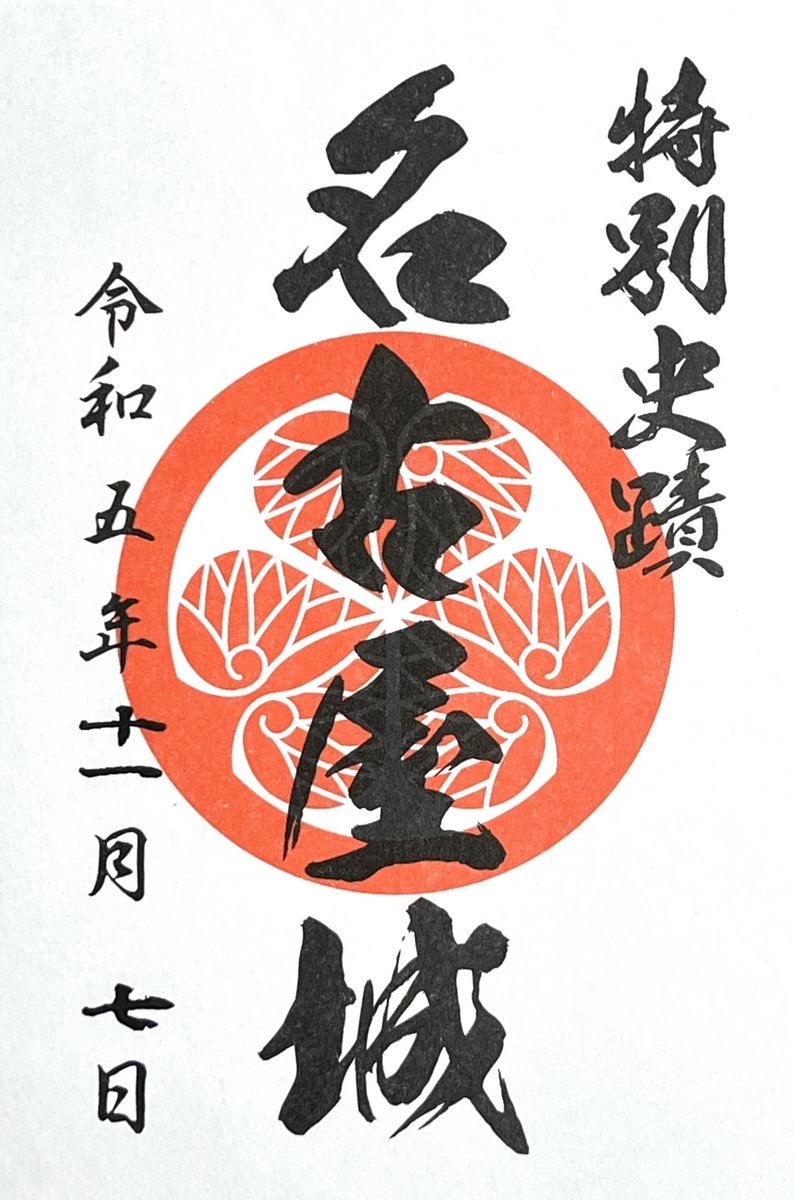 特別史蹟
名古屋城
令和五年十一月七日